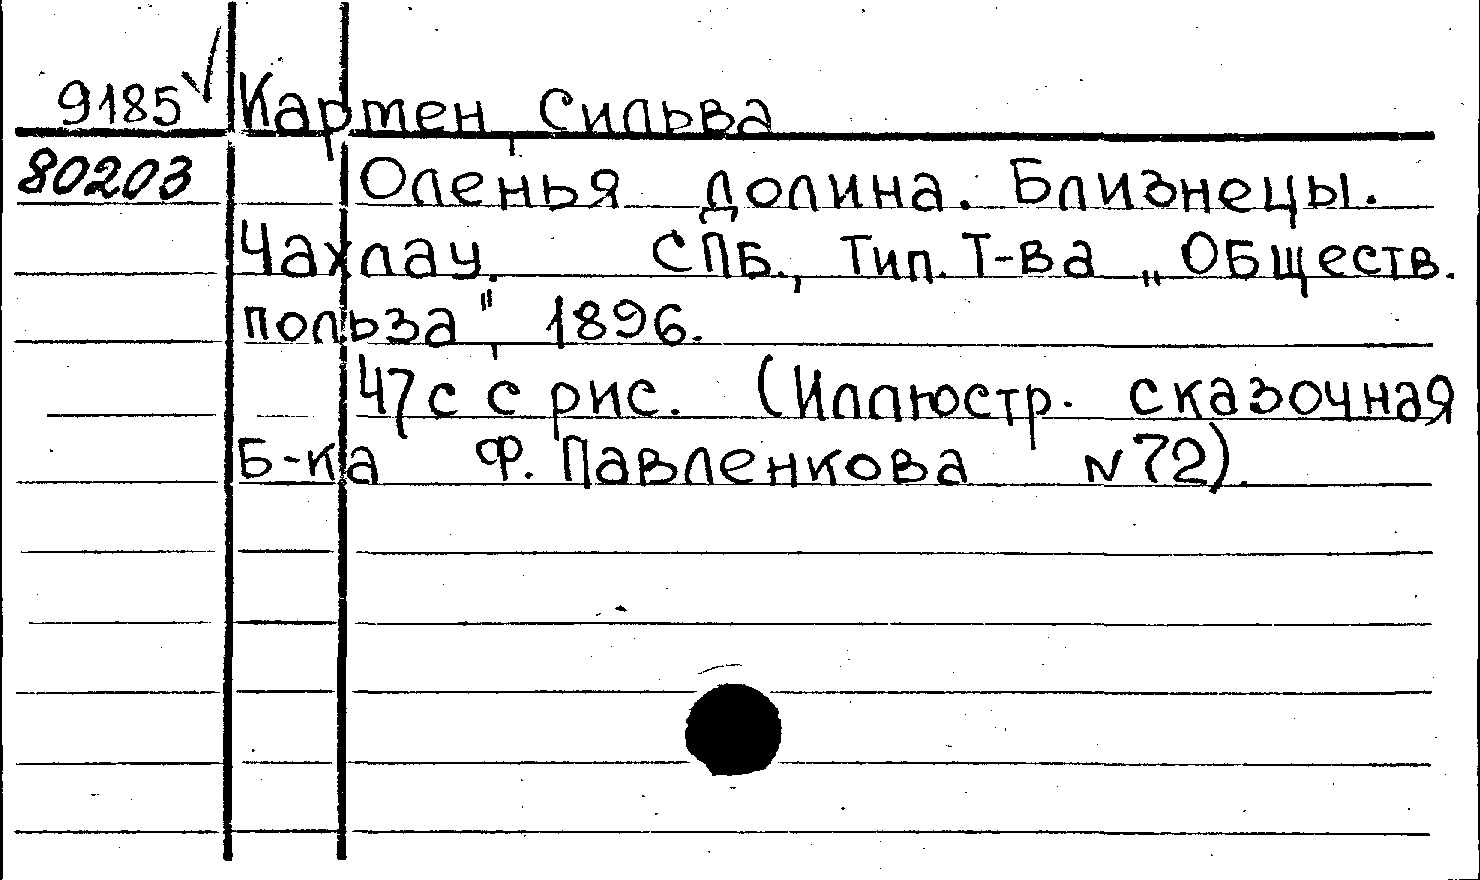 9185 Кармен, Сильва
80203 Оленья долина. Близнецы.
Чахлау. СПБ., Тип. Т-ва „Обществ.
польза", 1896.
47с с рис. (Иллюстр. сказочная
Б-ка Ф. Павленкова N72).